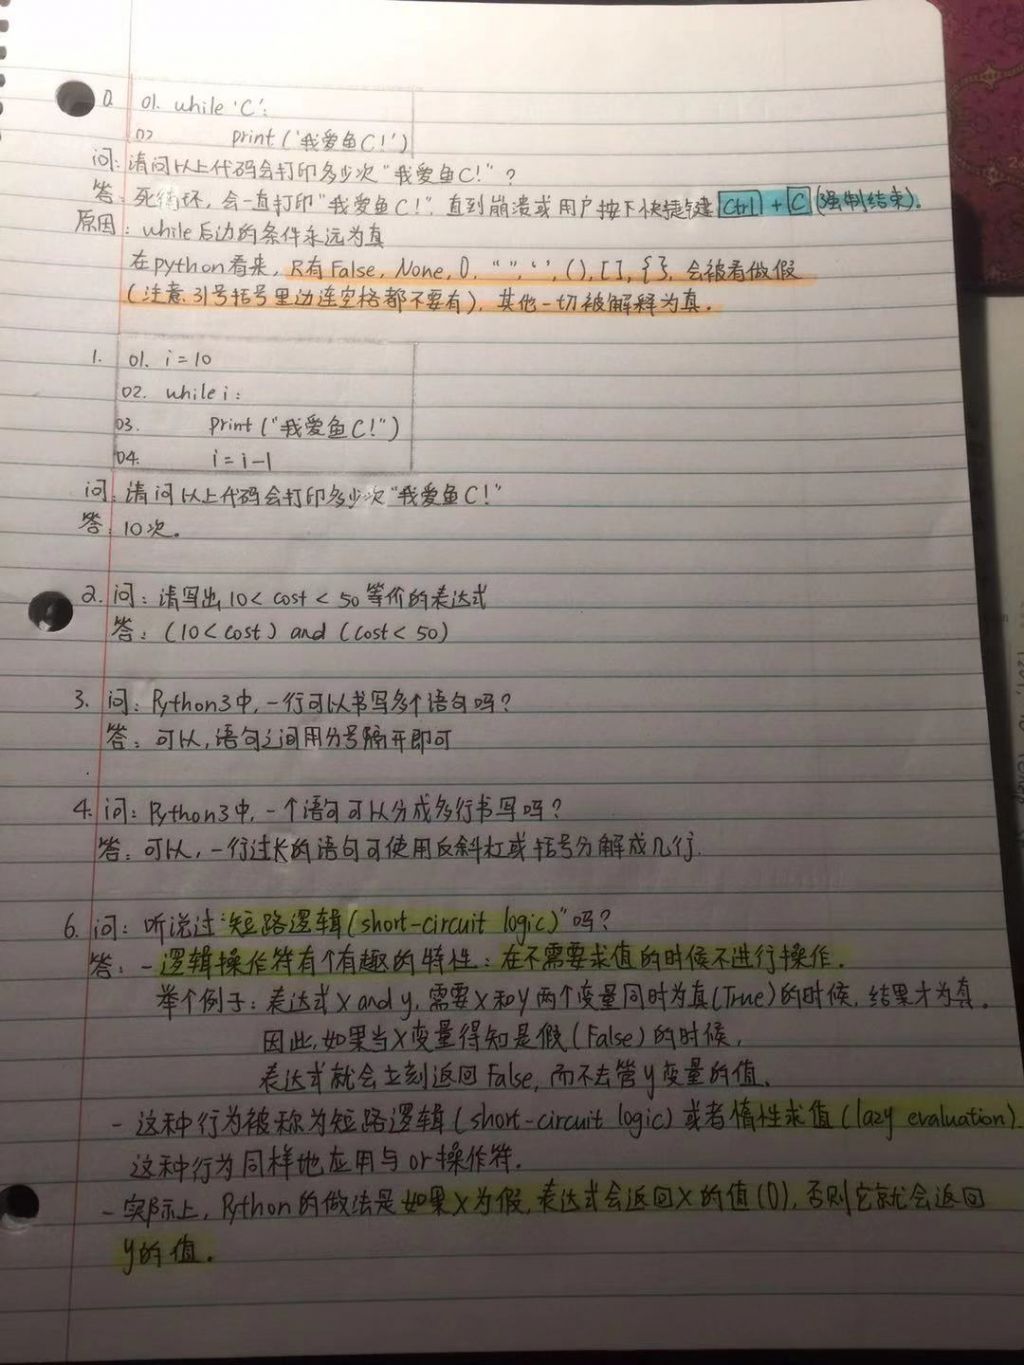 0. 01. while 'C':
02 print('我爱鱼C!')
问: 请问以上代码会打印多少次"我爱鱼C!"?
答: 死循环, 会一直打印"我爱鱼C!", 直到崩溃或用户按下快捷键 Ctrl + C (强制结束).
原因: while后边的条件永远为真
在python看来, 只有False, None, 0, "", '', (), [], {}, 会被看做假
(注意, 引号括号里边连空格都不要有), 其他一切被解释为真.
1. 01. i=10
02. while i:
03. print("我爱鱼C!")
04. i=i-1
问: 请问以上代码会打印多少次"我爱鱼C!"
答: 10次。
2. 问: 请写出 10< cost < 50 等价的表达式
答: (10<cost) and (cost<50)
3. 问: Python3中, 一行可以书写多个语句吗?
答: 可以, 语句之间用分号隔开即可
4. 问: Python3中, 一个语句可以分成多行书写吗?
答: 可以, 一行过长的语句可使用反斜杠或括号分解成几行.
6. 问: 听说过"短路逻辑(short-circuit logic)"吗?
答: - 逻辑操作符有个有趣的特性: 在不需要求值的时候不进行操作.
举个例子: 表达式 X and y, 需要X和y两个变量同时为真(True)的时候, 结果才为真。
因此, 如果当X变量得知是假(False)的时候,
表达式就会立刻返回False, 而不去管y变量的值、
- 这种行为被称为短路逻辑(short-circuit logic)或者惰性求值(lazy evaluation)
这种行为同样地应用与or操作符.
- 实际上, Python的做法是如果X为假, 表达式会返回X的值(0), 否则它就会返回
y的值。